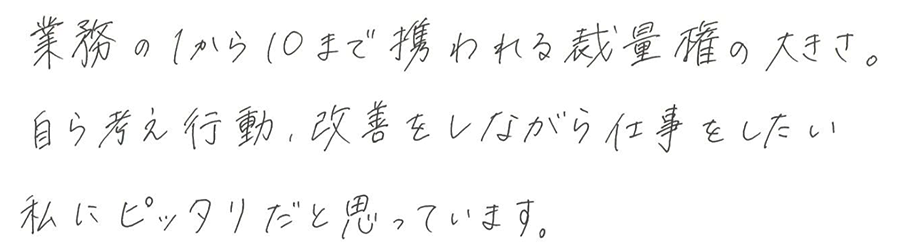 業務の1から10まで携われる裁量権の大きさ。
自ら考え行動、改善をしながら仕事をしたい
私にピッタリだと思っています。